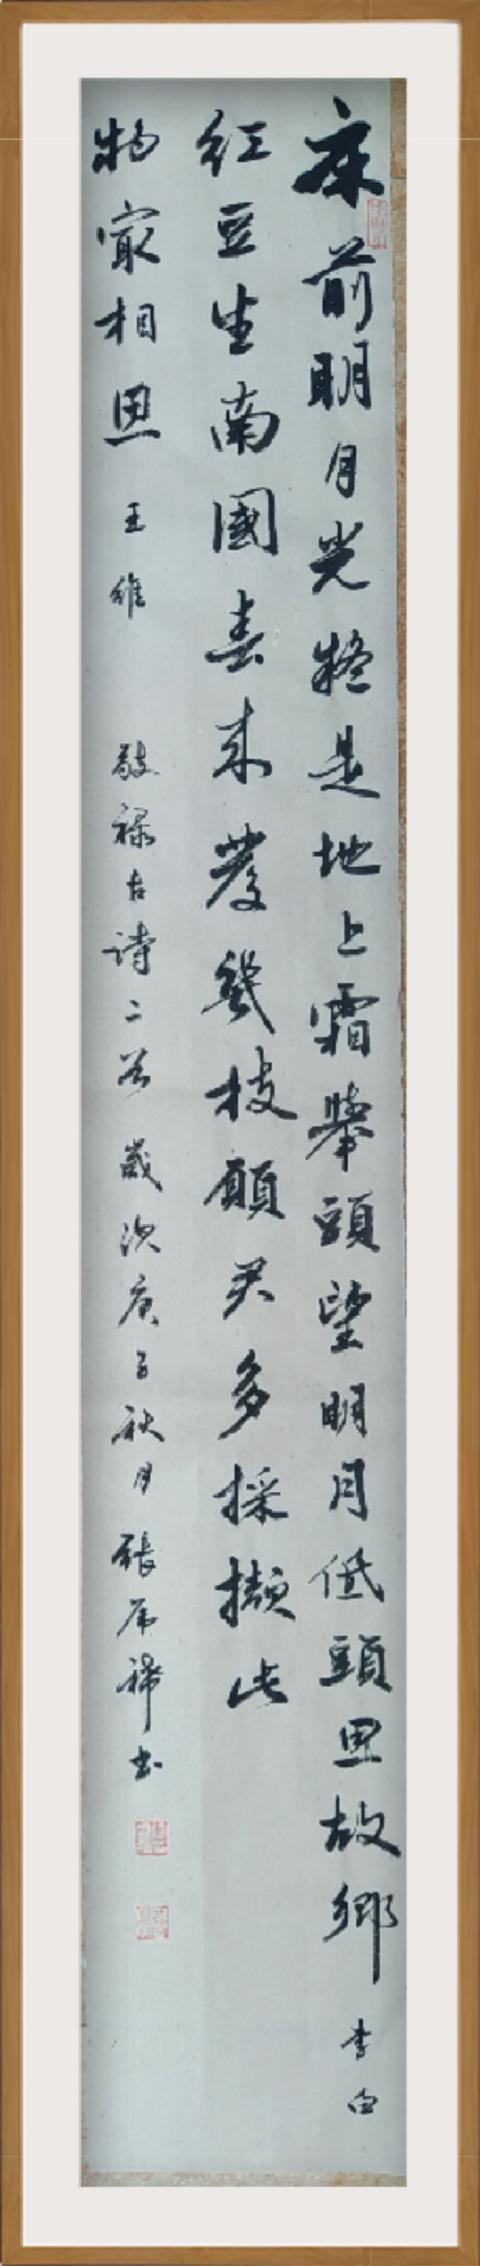 床前明月光疑是地上霜舉頭望明月低頭思故鄉 李白
紅豆生南國春來發幾枝願君多採擷此
物最相思 王維 敬禄古詩二首 歲次庚子秋月張 書